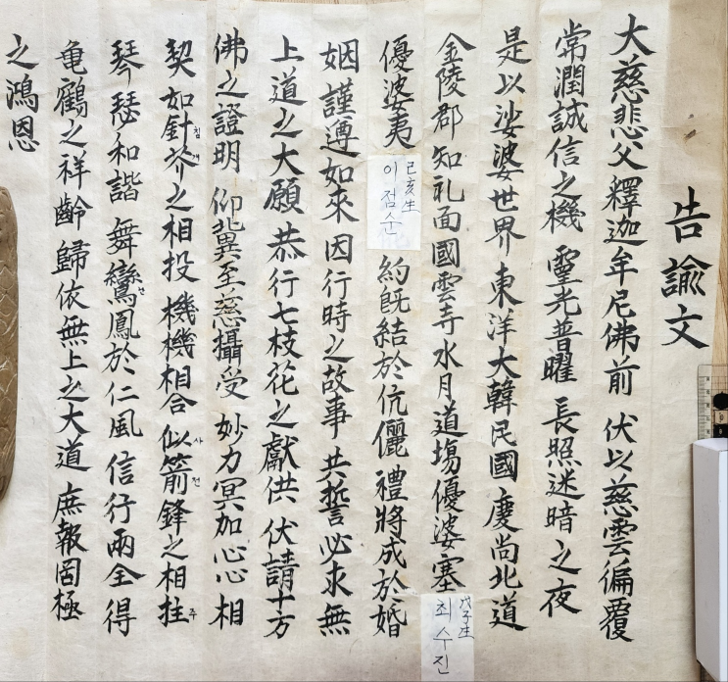 告諭文
大慈悲父釋迦牟尼佛前 伏以慈雲徧覆
常潤誠信之機 靈光普曜 長照迷暗之夜
是以娑婆世界 東洋大韓民國 慶尚北道
金陵郡知礼面國雲寺水月道場優婆塞 戊子生 최수진
優婆夷 己亥生 이점순 約旣結於伉儷 禮將成於婚
姻 謹遵如來 因行時之故事 共誓必求無
上道之大願 恭行七枝花之獻供 伏請十方
佛之證明 仰冀至慈攝受 妙力冥加心心相
契 如針芥之相投 機機相合 似箭鋒之相拄 침개 사전 주
琴瑟和諧 舞鸞鳳於仁風 信行兩全 得
亀鶴之祥齡 歸依無上之大道 庶報罔極
之鴻恩